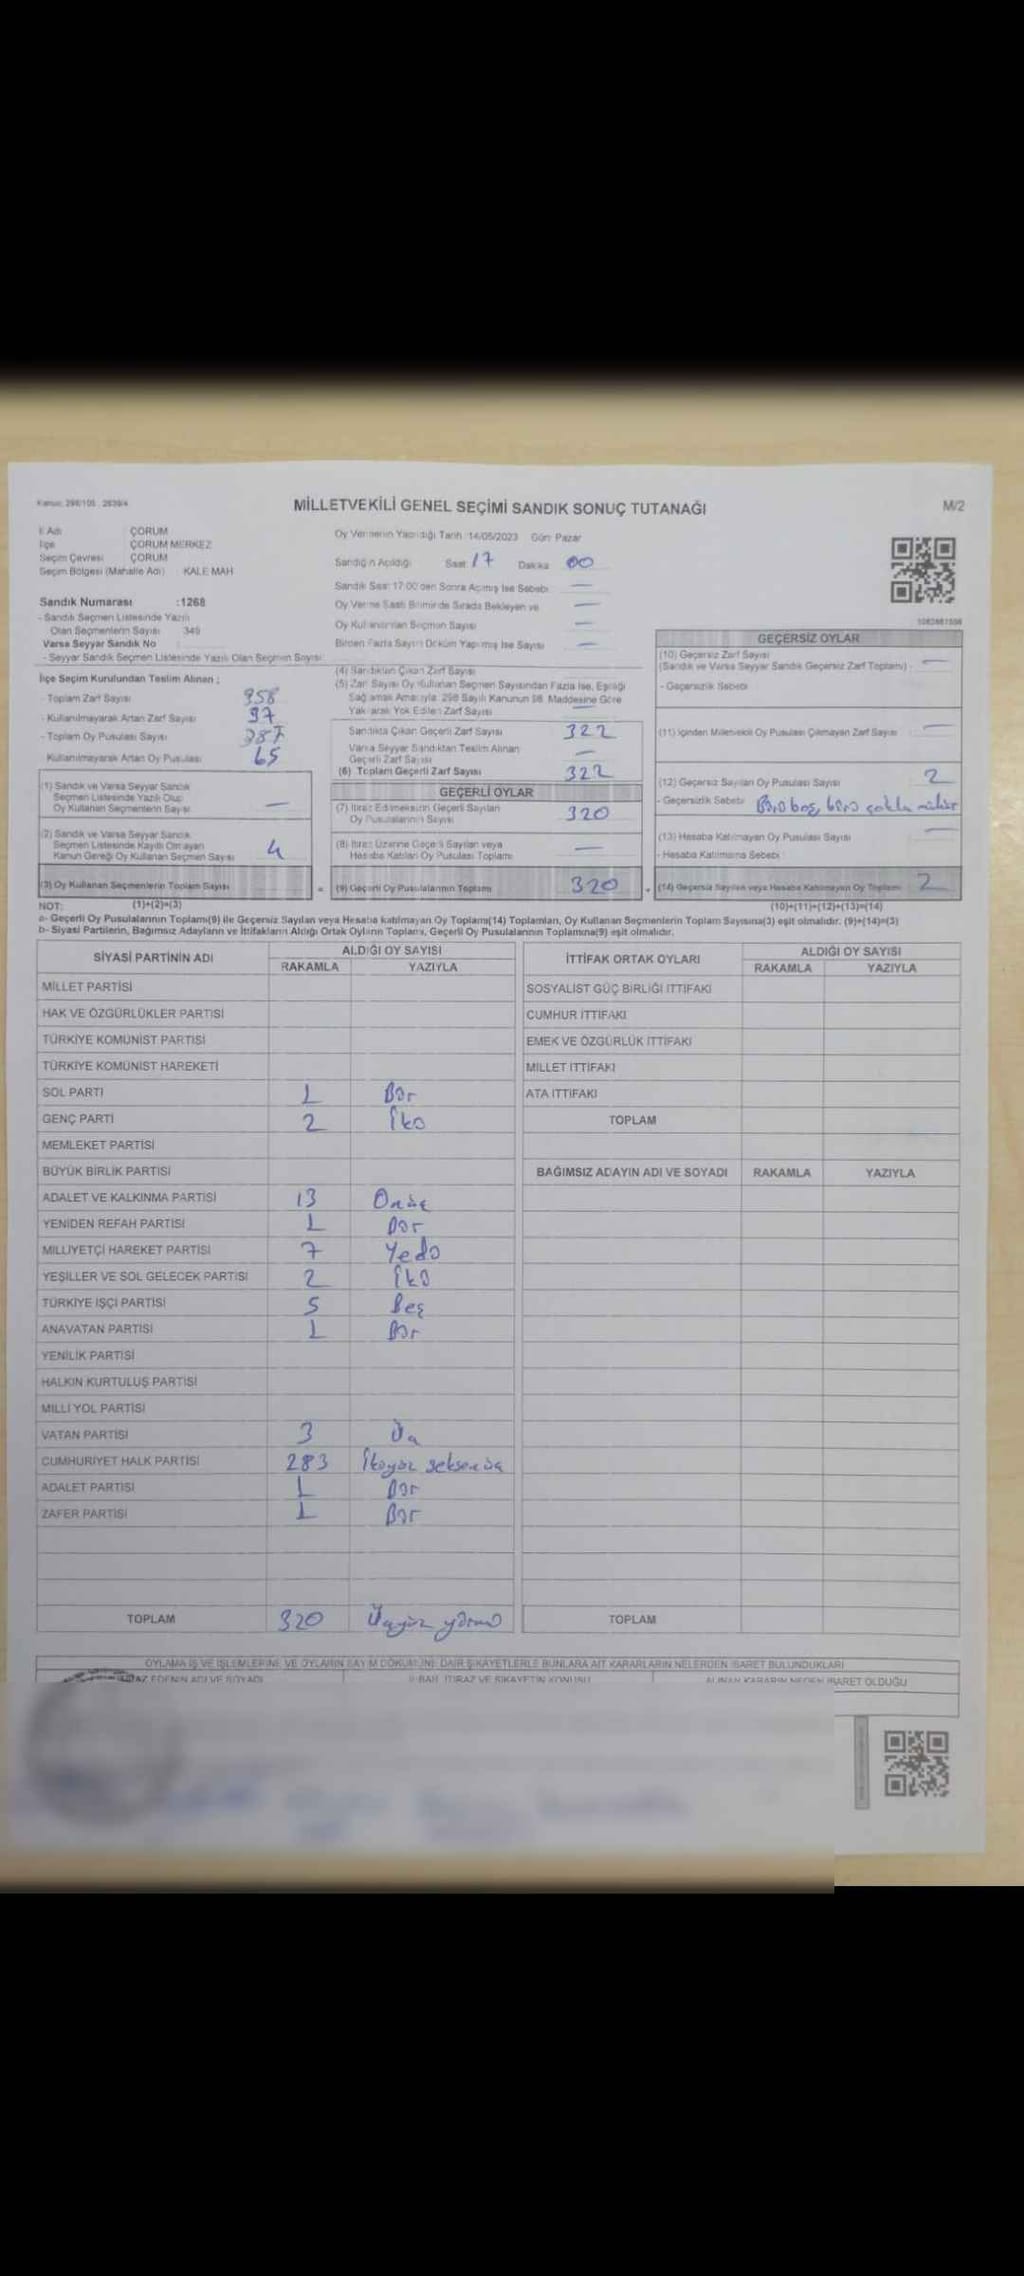 MİLLETVEKİLİ GENEL SEÇİMİ SANDIK SONUÇ TUTANAĞI
M/2
İl Adı ÇORUM
İlçe ÇORUM MERKEZ
Seçim Çevresi ÇORUM
Seçim Bölgesi (Mahalle Adı) KALE MAH
Oy Vermenin Yapıldığı Tarih :14/05/2023 Gün: Pazar
Sandığın Açıldığı Saat 17 Dakika 00
Sandık Saat 17:00'den Sonra Açılmış İse Sebebi —
Oy Verme Saati Bitiminde Sırada Bekleyen ve —
Oy Kullandırılan Seçmen Sayısı —
Birden Fazla Sayım Döküm Yapılmış İse Sayısı —
Sandık Numarası :1268
- Sandık Seçmen Listesinde Yazılı
Olan Seçmenlerin Sayısı 349
Varsa Seyyar Sandık No
- Seyyar Sandık Seçmen Listesinde Yazılı Olan Seçmen Sayısı
İlçe Seçim Kurulundan Teslim Alınan ;
- Toplam Zarf Sayısı 358
- Kullanılmayarak Artan Zarf Sayısı
- Toplam Oy Pusulası Sayısı 387
Kullanılmayarak Artan Oy Pusulası 65
(1) Sandık ve Varsa Seyyar Sandık
Seçmen Listesinde Yazılı Olup
Oy Kullanan Seçmenlerin Sayısı —
(2) Sandık ve Varsa Seyyar Sandık
Seçmen Listesinde Kayıtlı Olmayan
Kanun Gereği Oy Kullanan Seçmen Sayısı 4
(3) Oy Kullanan Seçmenlerin Toplam Sayısı
(4) Sandıktan Çıkan Zarf Sayısı
(5) Zarf Sayısı Oy Kullanan Seçmen Sayısından Fazla İse, Eşitliği
Sağlamak Amacıyla, 298 Sayılı Kanunun 98. Maddesine Göre
Yakılarak Yok Edilen Zarf Sayısı —
Sandıkta Çıkan Geçerli Zarf Sayısı 322
Varsa Seyyar Sandıktan Teslim Alınan
Geçerli Zarf Sayısı —
(6) Toplam Geçerli Zarf Sayısı 322
GEÇERLİ OYLAR
(7) İtiraz Edilmeksizin Geçerli Sayılan
Oy Pusulalarının Sayısı 320
(8) İtiraz Üzerine Geçerli Sayılan veya
Hesaba Katılan Oy Pusulası Toplamı —
(9) Geçerli Oy Pusulalarının Toplamı 320
GEÇERSİZ OYLAR
(10) Geçersiz Zarf Sayısı
(Sandık ve Varsa Seyyar Sandık Geçersiz Zarf Toplamı) —
- Geçersizlik Sebebi
(11) İçinden Milletvekili Oy Pusulası Çıkmayan Zarf Sayısı —
(12) Geçersiz Sayılan Oy Pusulası Sayısı 2
- Geçersizlik Sebebi Birisi boş, birisi çoklu mühür
(13) Hesaba Katılmayan Oy Pusulası Sayısı —
- Hesaba Katılmama Sebebi
(14) Geçersiz Sayılan veya Hesaba Katılmayan Oy Toplamı 2
NOT: (1)+(2)=(3) (10)+(11)+(12)+(13)=(14)
a- Geçerli Oy Pusulalarının Toplamı(9) ile Geçersiz Sayılan veya Hesaba katılmayan Oy Toplamı(14) Toplamları, Oy Kullanan Seçmenlerin Toplam Sayısına(3) eşit olmalıdır. (9)+(14)=(3)
b- Siyasi Partilerin, Bağımsız Adayların ve İttifakların Aldığı Ortak Oyların Toplamı, Geçerli Oy Pusulalarının Toplamına(9) eşit olmalıdır.
SİYASİ PARTİNİN ADI ALDIĞI OY SAYISI
RAKAMLA YAZIYLA
MİLLET PARTİSİ
HAK VE ÖZGÜRLÜKLER PARTİSİ
TÜRKİYE KOMÜNİST PARTİSİ
TÜRKİYE KOMÜNİST HAREKETİ
SOL PARTİ 1 Bir
GENÇ PARTİ 2 İki
MEMLEKET PARTİSİ
BÜYÜK BİRLİK PARTİSİ
ADALET VE KALKINMA PARTİSİ 13 Onüç
YENİDEN REFAH PARTİSİ 1 Bir
MİLLİYETÇİ HAREKET PARTİSİ 7 Yedi
YEŞİLLER VE SOL GELECEK PARTİSİ 2 İki
TÜRKİYE İŞÇİ PARTİSİ 5 Beş
ANAVATAN PARTİSİ 1 Bir
YENİLİK PARTİSİ
HALKIN KURTULUŞ PARTİSİ
MİLLİ YOL PARTİSİ
VATAN PARTİSİ 3 Üç
CUMHURİYET HALK PARTİSİ 283 İkiyüz seksenüç
ADALET PARTİSİ 1 Bir
ZAFER PARTİSİ 1 Bir
TOPLAM 320 Üçyüz yirmi
İTTİFAK ORTAK OYLARI ALDIĞI OY SAYISI
RAKAMLA YAZIYLA
SOSYALİST GÜÇ BİRLİĞİ İTTİFAKI
CUMHUR İTTİFAKI
EMEK VE ÖZGÜRLÜK İTTİFAKI
MİLLET İTTİFAKI
ATA İTTİFAKI
TOPLAM
BAĞIMSIZ ADAYIN ADI VE SOYADI RAKAMLA YAZIYLA
TOPLAM
OYLAMA İŞ VE İŞLEMLERİNE VE OYLARIN SAYIM DÖKÜMÜNE DAİR ŞİKAYETLERLE BUNLARA AİT KARARLARIN NELERDEN İBARET BULUNDUKLARI
İTİRAZ EDENİN ADI VE SOYADI
İTİRAZ VE ŞİKAYETİN KONUSU
ALINAN KARARIN NEDEN İBARET OLDUĞU